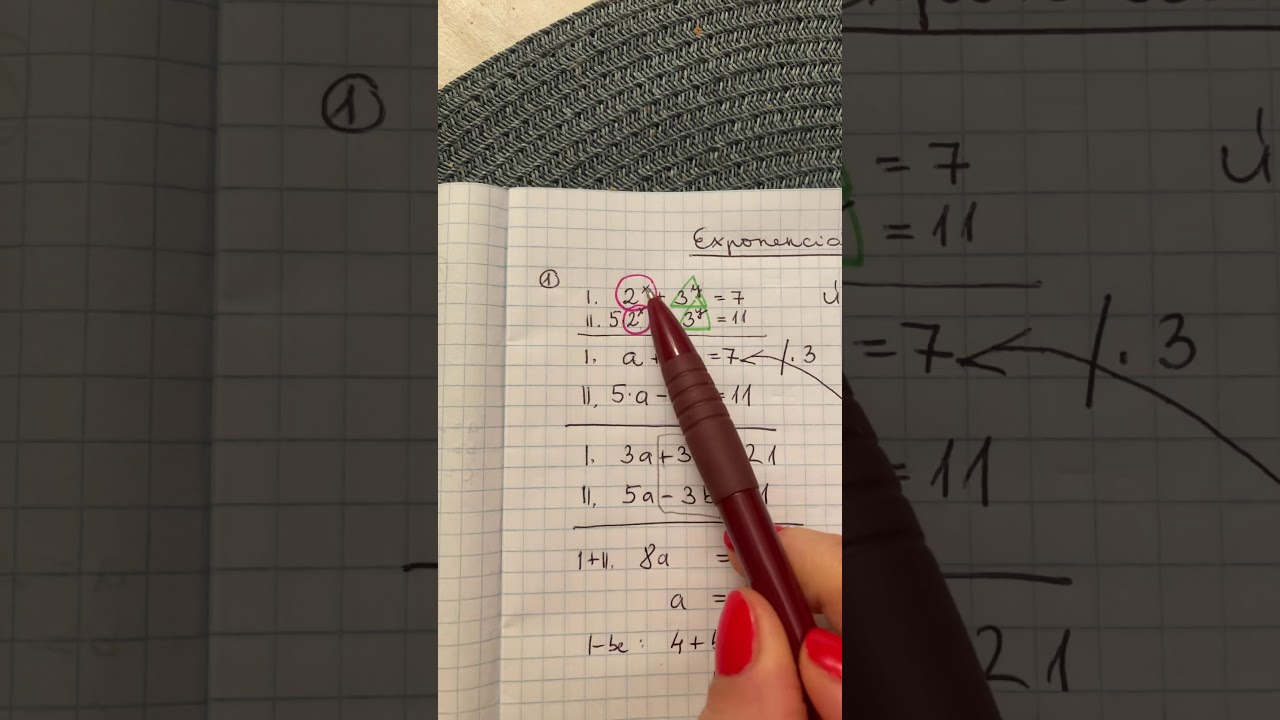 Exponencia
①
I. 2ˣ + 3ʸ = 7
ú
II. 5 2ˣ 3ʸ = 11
I. a + = 7 /.3
II. 5·a − = 11
I. 3a + 3 21
II. 5a − 3b 1
I+II. 8a =
a =
I-be: 4 +